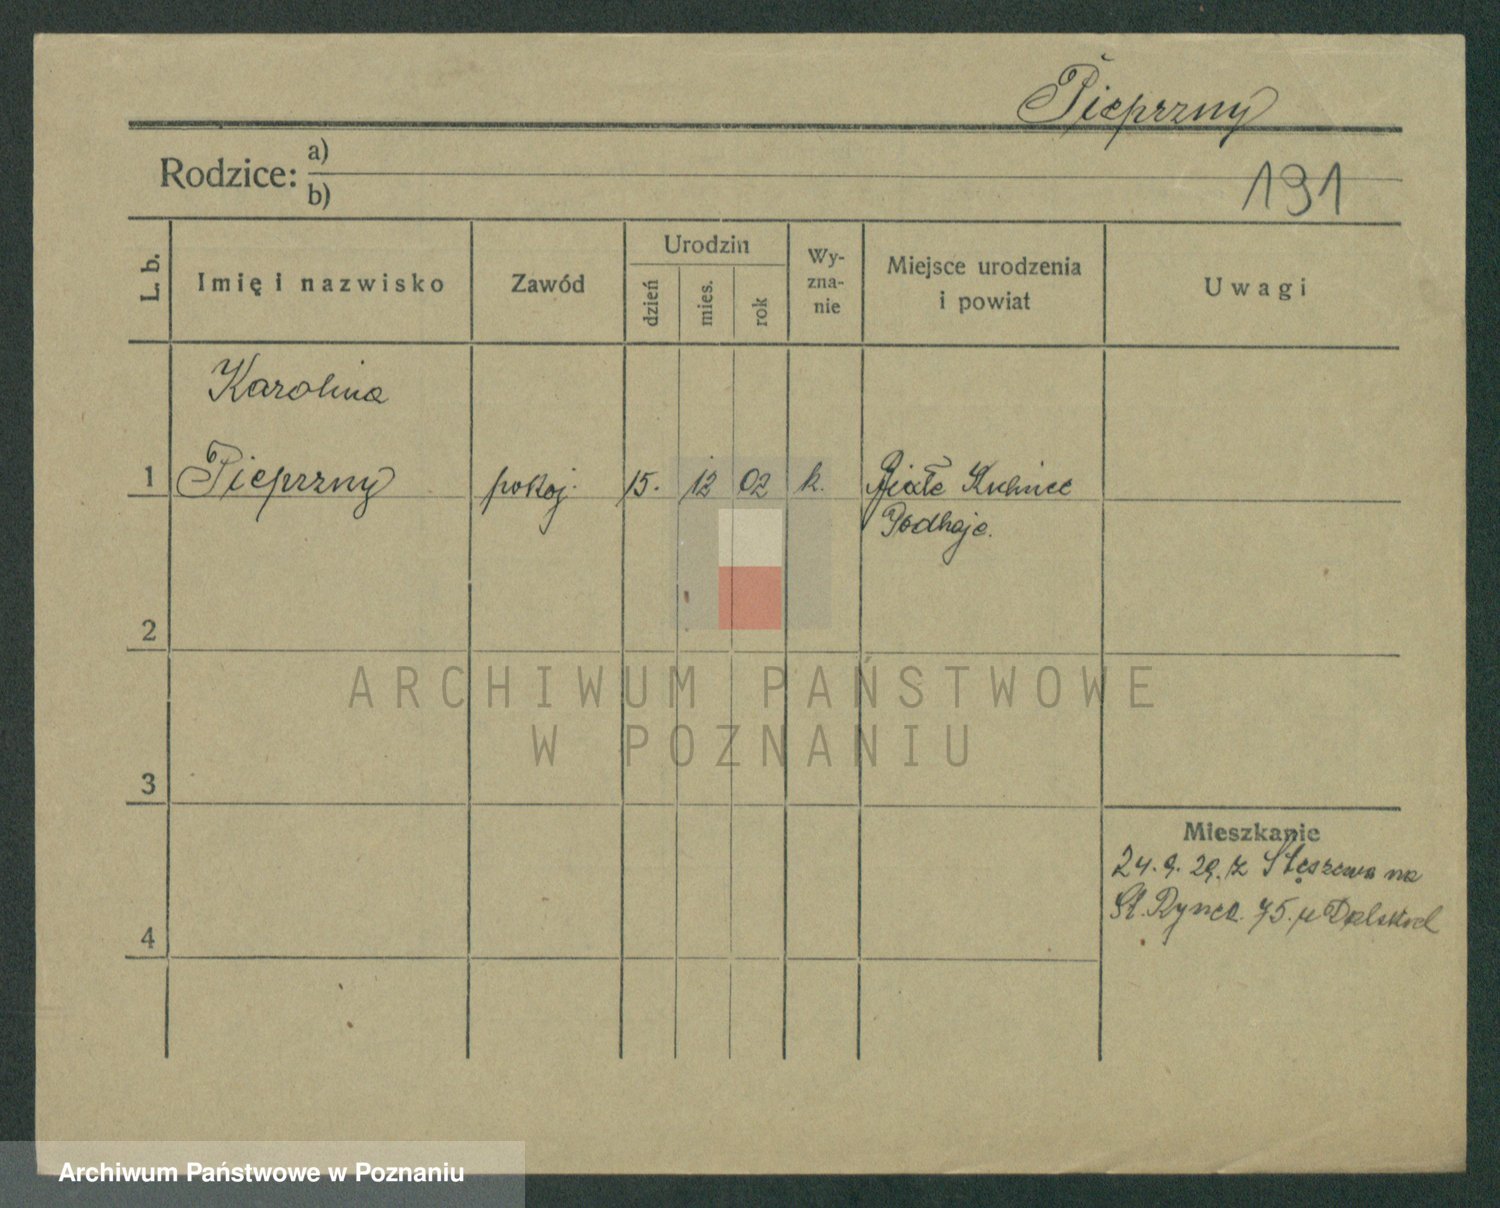 Pieprzny
Rodzice: a)
b)
191
L. b.
Imię i nazwisko
Zawód
Urodzin
dzień
mies.
rok
Wy-
zna-
nie
Miejsce urodzenia
i powiat
Uwagi
Karolina
1 Pieprzny pokoj. 15. 12 02 k.
Podhaje.
2
3
4
Mieszkanie
24. 9. 29. z Stęszewa na
St. Rynek. 75. u
ARCHIWUM PAŃSTWOWE
W POZNANIU
Archiwum Państwowe w Poznaniu